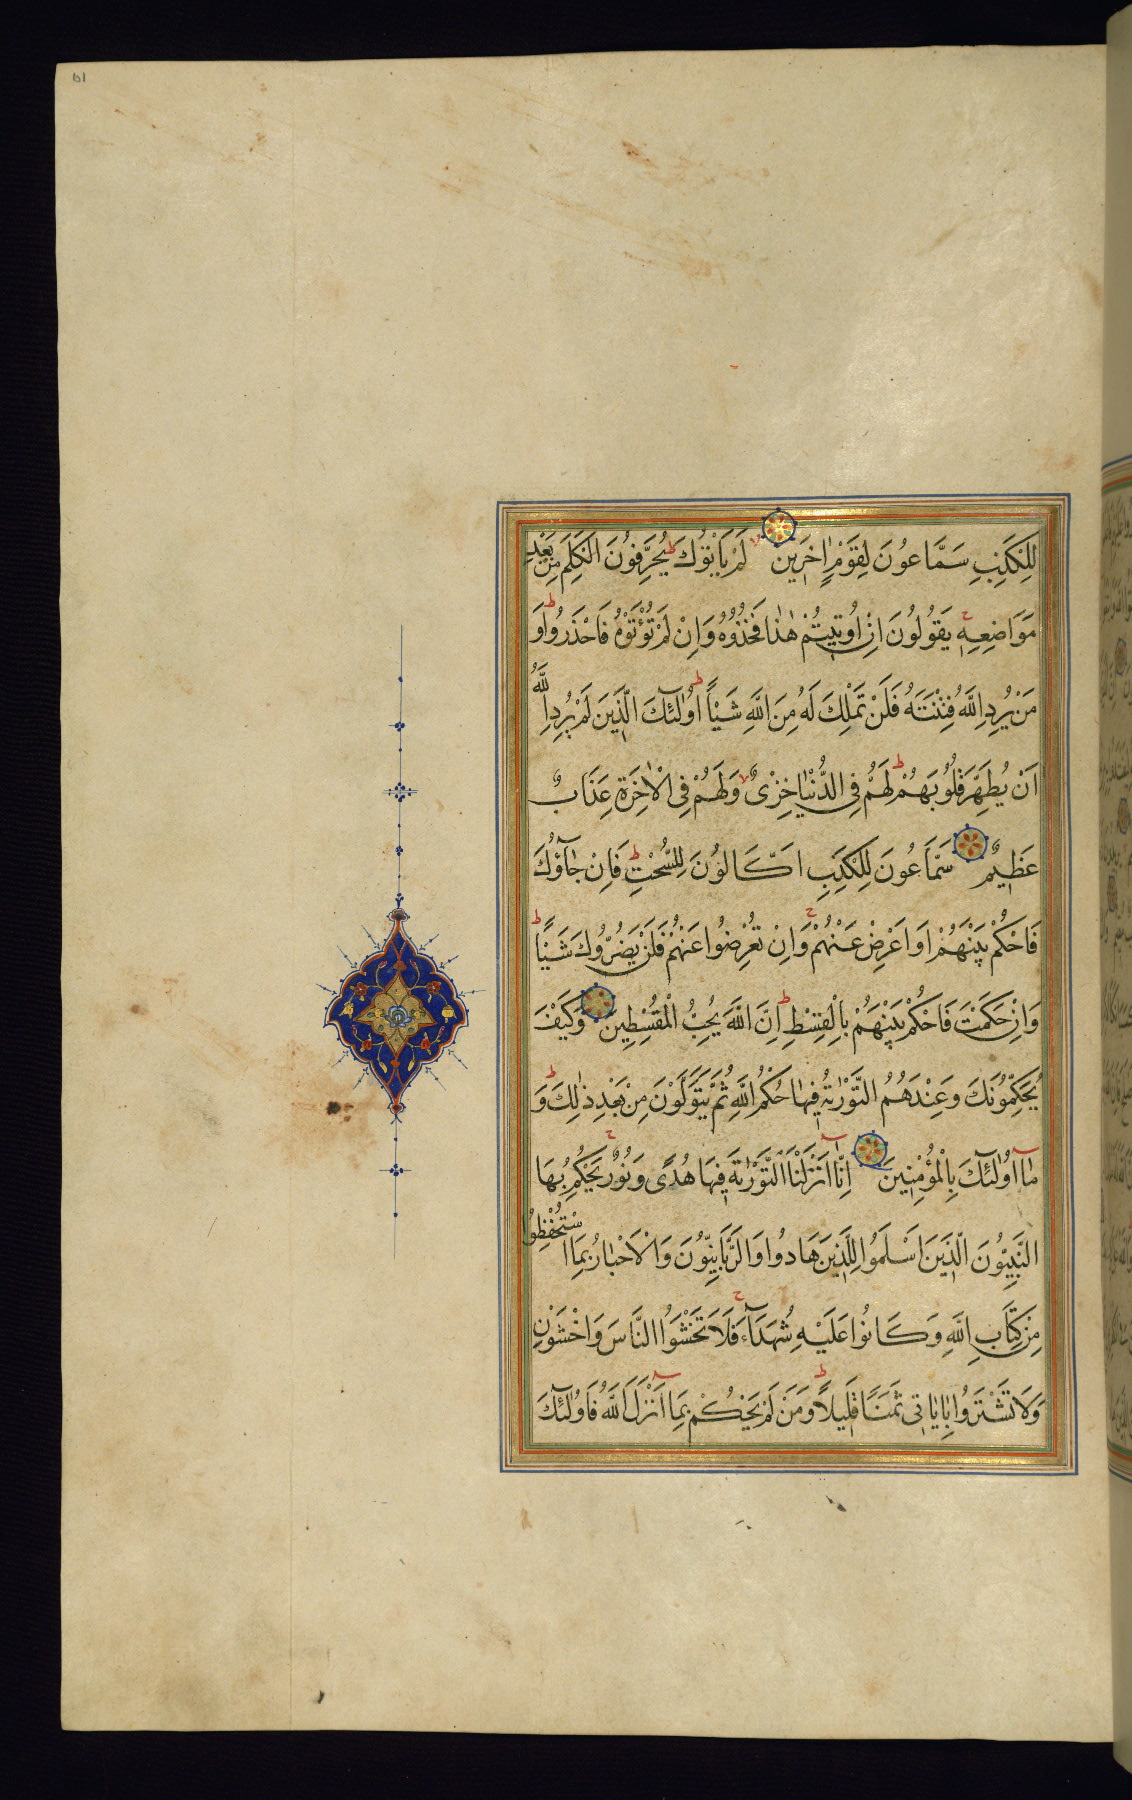 ١٥١
لِلْكَذِبِ سَمَّاعُونَ لِقَوْمٍ اٰخَرِينَ لَمْ يَأْتُوكَ يُحَرِّفُونَ الْكَلِمَ مِنْ بَعْدِ
مَوَاضِعِهِ يَقُولُونَ اِنْ اُوتِيتُمْ هٰذَا فَخُذُوهُ وَاِنْ لَمْ تُؤْتَوْهُ فَاحْذَرُوا وَ
مَنْ يُرِدِ اللَّهُ فِتْنَتَهُ فَلَنْ تَمْلِكَ لَهُ مِنَ اللَّهِ شَيْاً اُولٰئِكَ الَّذِينَ لَمْ يُرِدِ اللَّهُ
اَنْ يُطَهِّرَ قُلُوبَهُمْ لَهُمْ فِي الدُّنْيَا خِزْىٌ وَلَهُمْ فِي الْاٰخِرَةِ عَذَابٌ
عَظِيمٌ سَمَّاعُونَ لِلْكَذِبِ اَكَّالُونَ لِلسُّحْتِ فَاِنْ جَآؤُكَ
فَاحْكُمْ بَيْنَهُمْ اَوْ اَعْرِضْ عَنْهُمْ وَاِنْ تُعْرِضُوا عَنْهُمْ فَلَنْ يَضُرُّوكَ شَيْاً
وَاِنْ حَكَمْتَ فَاحْكُمْ بَيْنَهُمْ بِالْقِسْطِ اِنَّ اللَّهَ يُحِبُّ الْمُقْسِطِينَ وَكَيْفَ
يُحَكِّمُونَكَ وَعِنْدَهُمُ التَّوْرٰىةُ فِيهَا حُكْمُ اللَّهِ ثُمَّ يَتَوَلَّوْنَ مِنْ بَعْدِ ذٰلِكَ وَ
مَآ اُولٰئِكَ بِالْمُؤْمِنِينَ اِنَّا اَنْزَلْنَا التَّوْرٰىةَ فِيهَا هُدًى وَنُورٌ يَحْكُمُ بِهَا
النَّبِيُّونَ الَّذِينَ اَسْلَمُوا لِلَّذِينَ هَادُوا وَالرَّبَّانِيُّونَ وَالْاَحْبَارُ بِمَا اسْتُحْفِظُوا
مِنْ كِتَابِ اللَّهِ وَكَانُوا عَلَيْهِ شُهَدَآءَ فَلَا تَخْشَوُا النَّاسَ وَاخْشَوْنِ
وَلَا تَشْتَرُوا بِاٰيَاتِى ثَمَنًا قَلِيلًا وَمَنْ لَمْ يَحْكُمْ بِمَا اَنْزَلَ اللَّهُ فَاُولٰئِكَ